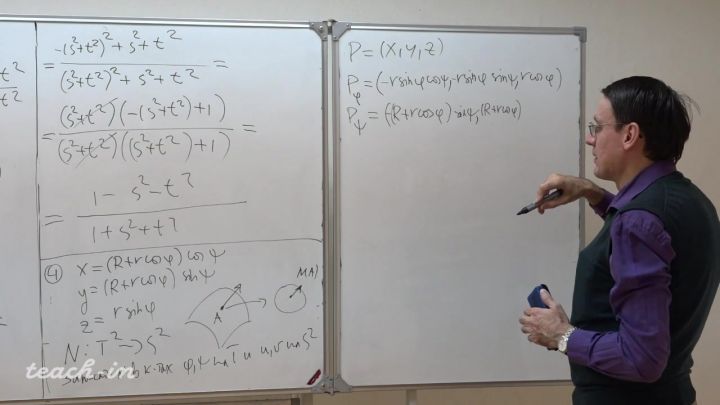 t²
t²
= -(s²+t²)²+s²+t² / (s²+t²)²+s²+t² =
= (s²+t²)(-(s²+t²)+1) / (s²+t²)((s²+t²)+1) =
= 1-s²-t² / 1+s²+t²
④ x=(R+rcosφ)cosψ
y=(R+rcosφ)sinψ
z= r sinφ
N: T²→S²
A
M(A)
φ, ψ на T и u, v на S²
P=(x,y,z)
P_φ=(-rsinφcosψ,-rsinφ sinψ, rcosφ)
P_ψ=(-(R+rcosφ)·sinψ, (R+rcosφ)
teach-in